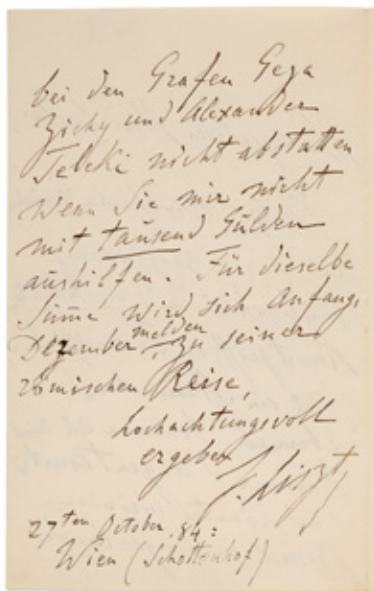 bei den Grafen Geza
Zichy und Alexander
Teleki nicht abstatten
wenn Sie mir nicht
mit tausend Gulden
aushilfen. Für dieselbe
Sume wird sich Anfangs
Dezember melden, zu seiner
römischen Reise,
hochachtungsvoll
ergeben
F. Liszt
27ten October. 84:
Wien (Schottenhof)